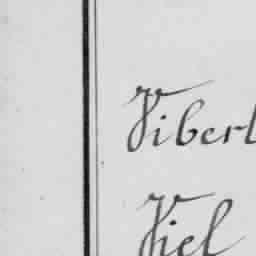 Vibert
Viel